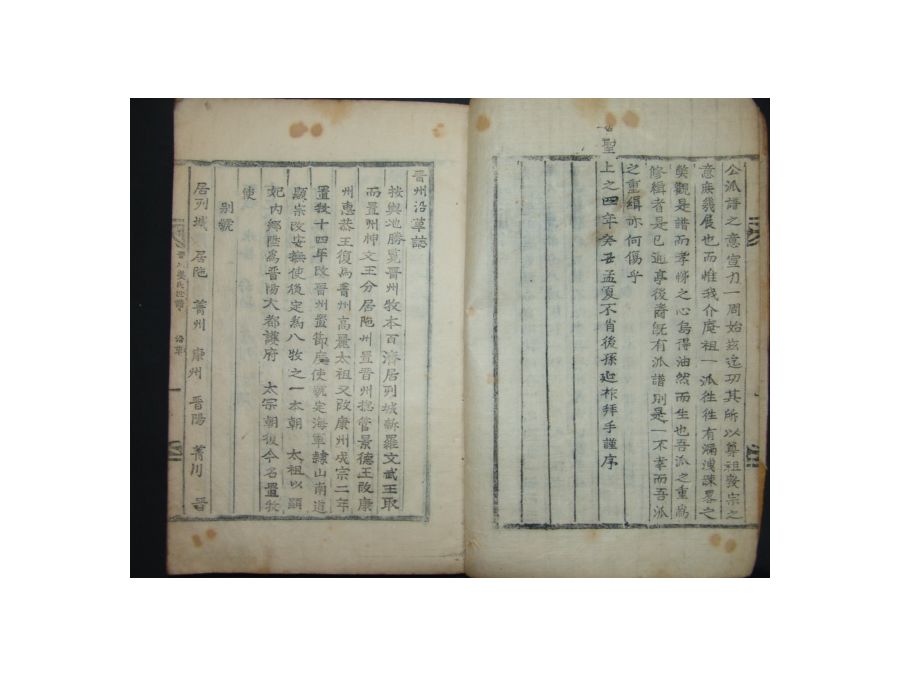 公派譜之意宣力一周始玆迄功其所以尊祖发宗之
意庶幾展也而惟我介庵祖一派徃徃有漏洩踈畧之
獘觀是譜而孝悌之心烏得油然而生也吾派之重爲
修緝者是已迊亭後裔旣有派譜則是一不幸而吾派
之重緝亦何傷乎
聖
上之四年癸丑孟夏不肖後孫 拜手謹序
晋州沿革誌
按輿地勝覧晋州牧本百濟居列城新羅文武王取
而置州神文王分居陁州置晋州捴管景德王改康
州惠恭王復爲菁州高麗太祖又改康州成宗二年
置牧十四年改晋州置節度使號定海軍隷山南道
顯宗改安撫使後定爲八牧之一本朝 太祖以顯
妃内鄕陞爲晋陽大都護府 太宗朝復今名置牧
使
別號
居列城 居陁 菁州 康州 晋陽 菁川 晋